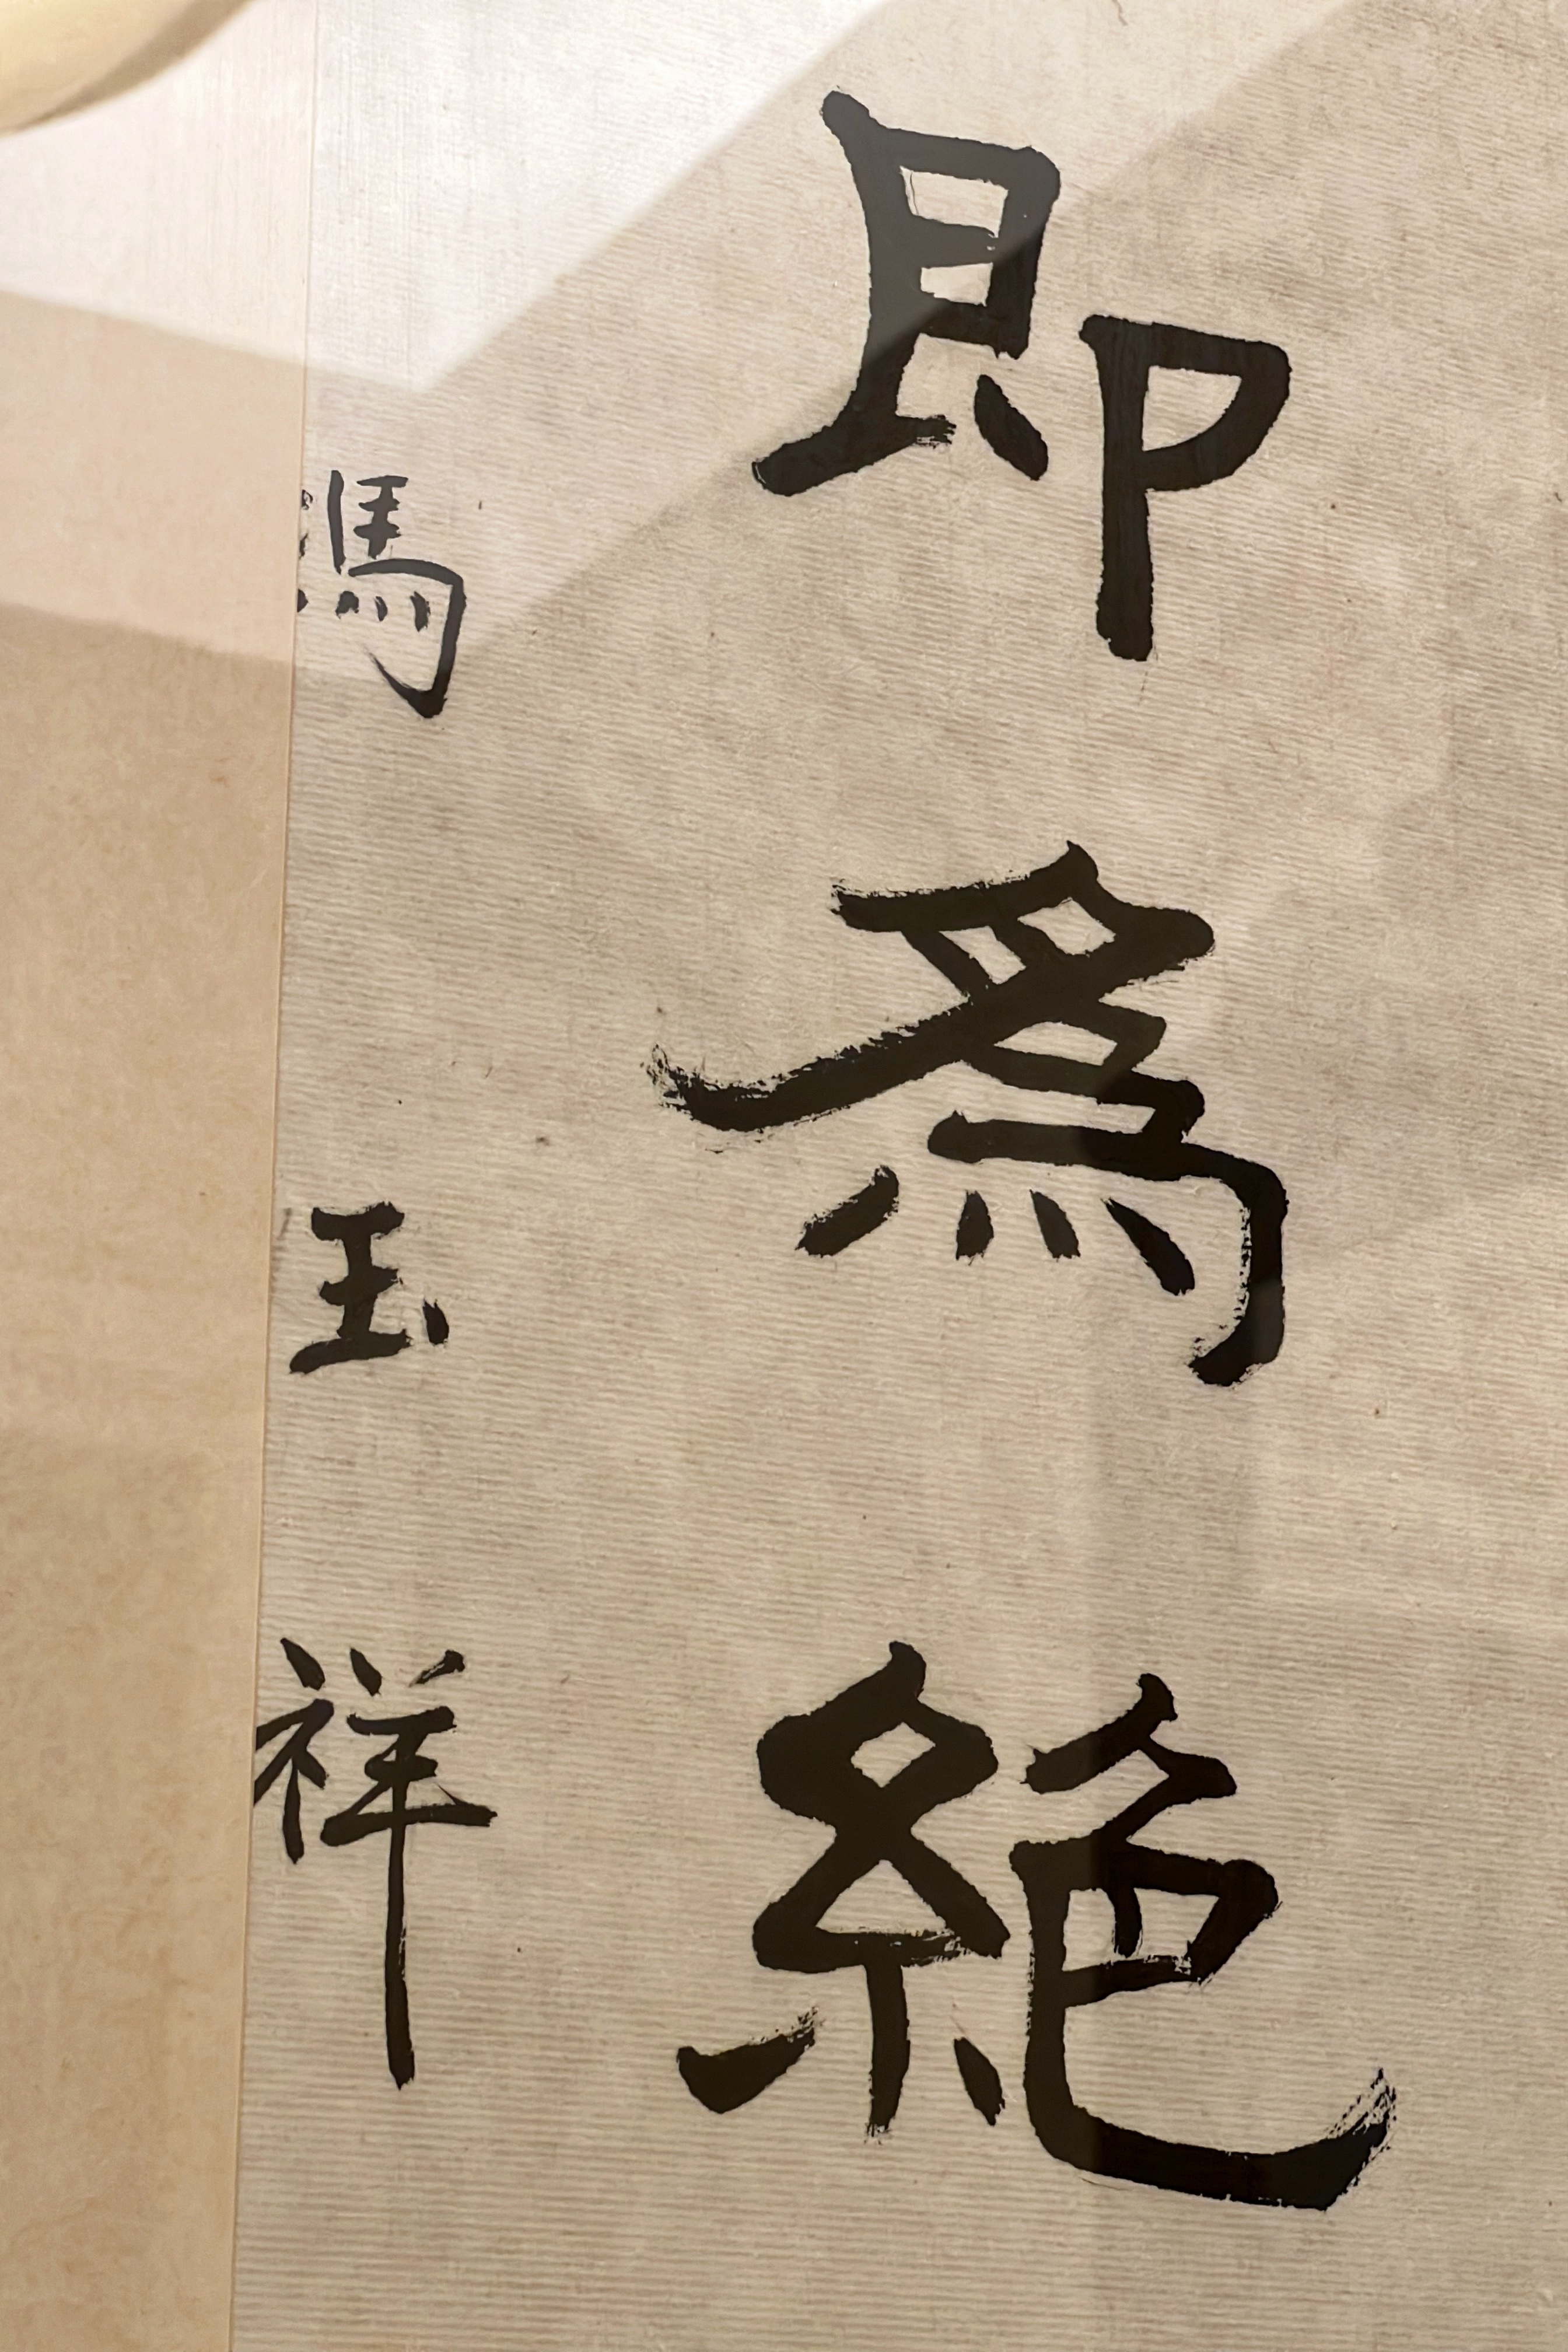 即為絕
馮玉祥